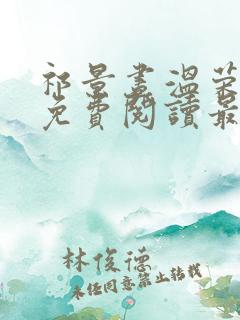 祁景晝溫荣
免費閱讀最
林俊德
未经同意禁止转载